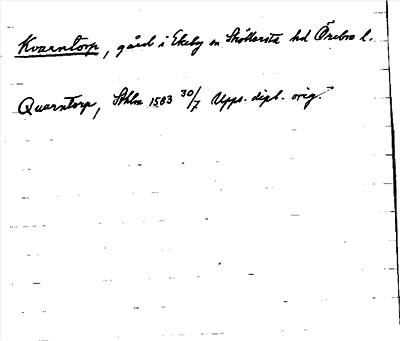 Kvarntorp, gård i Ekeby sn Sköllersta hd Örebro l.
Quarntorp, Sthlm 1583 30/7 Upps. dipl. orig.